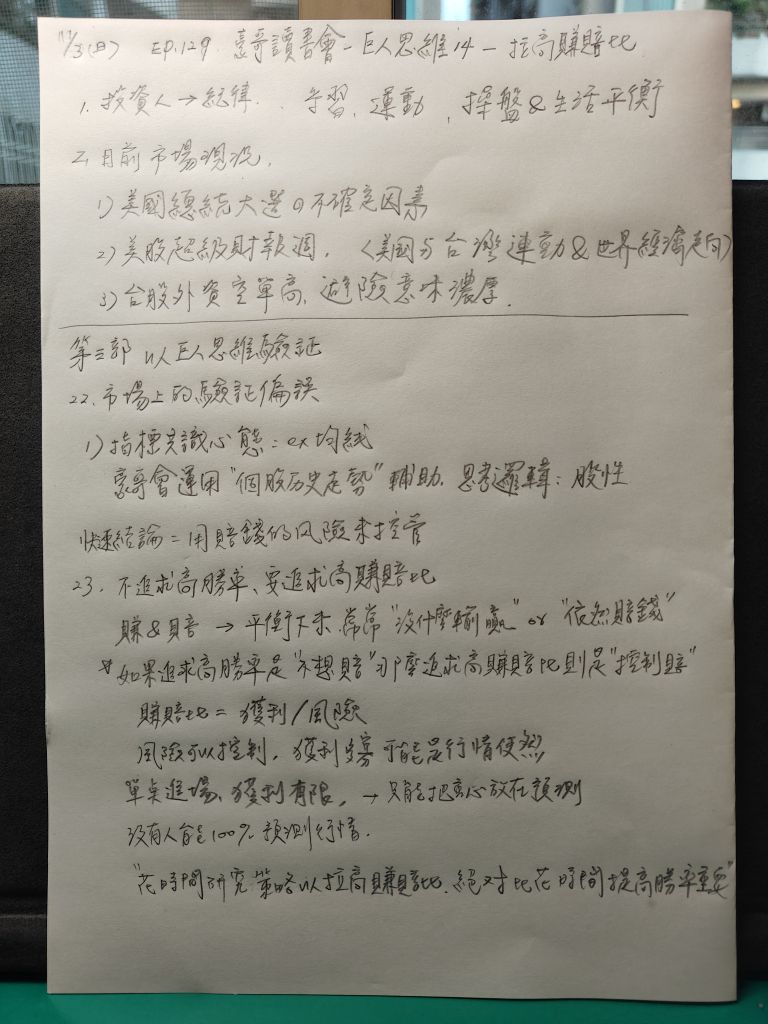 11/3(日) EP.129 豪哥讀書會-巨人思維14-拉高賺賠比
1. 投資人→紀律. 學習、運動、操盤&生活平衡
2. 目前市場現況.
1) 美國總統大選の不確定因素
2) 美股超級財報週. (美國与台灣連動&世界經濟走向)
3) 台股外資空單高、避險意味濃厚.
第三部 以巨人思維驗証
22. 市場上的驗証偏誤
1) 指標共識心態: ex 均線
豪哥會運用"個股历史走勢"輔助. 思考邏輯: 股性
快速結論=用賠錢的风險來控管
23. 不追求高勝率、要追求高賺賠比
賺&賠 → 平衡下來.常常"沒什麼輸贏" or "依然賠錢"
*如果追求高勝率是"不想賠"那麼追求高賺賠比則是"控制賠"
賺賠比=獲利/風險
風險可以控制, 獲利多寡可能是行情使然
單求進場、獲利有限, →只能把重心放在預測
沒有人能100%預測行情.
"花時間研究策略以拉高賺賠比、絕对比花時間提高勝率重要"